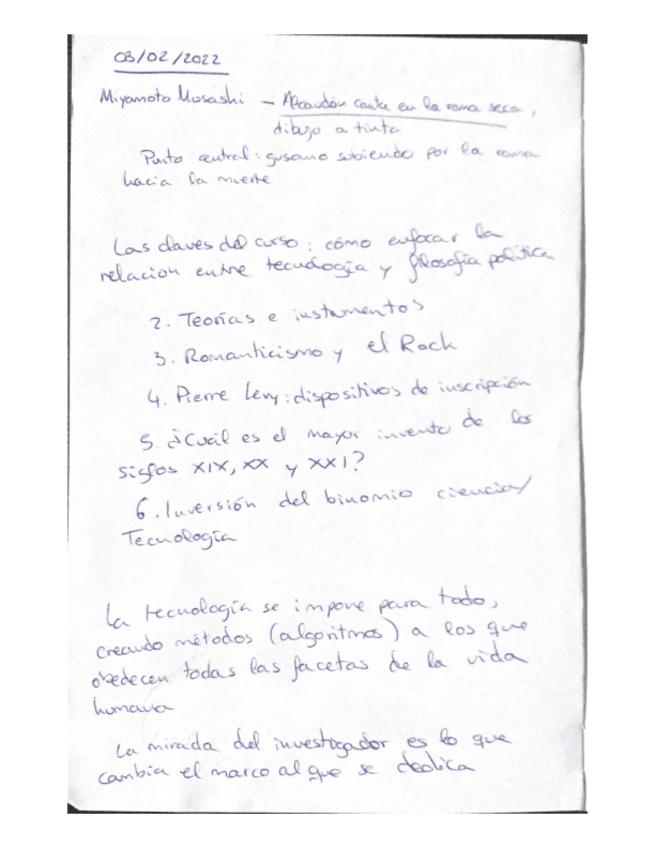 03/02/2022
Miyamoto Musashi – Alcaudón canta en la rama seca,
dibujo a tinta
Punto central: gusano subiendo por la rama
hacia la muerte
Las claves del curso: cómo enfocar la
relación entre tecnología y filosofía política
2. Teorías e instrumentos
3. Romanticismo y el Rock
4. Pierre Levy: dispositivos de inscripción
5. ¿Cuál es el mayor invento de los
siglos XIX, XX y XXI?
6. Inversión del binomio ciencia/
Tecnología
La tecnología se impone para todo,
creando métodos (algoritmos) a los que
obedecen todas las facetas de la vida
humana
La mirada del investigador es lo que
cambia el marco al que se dedica